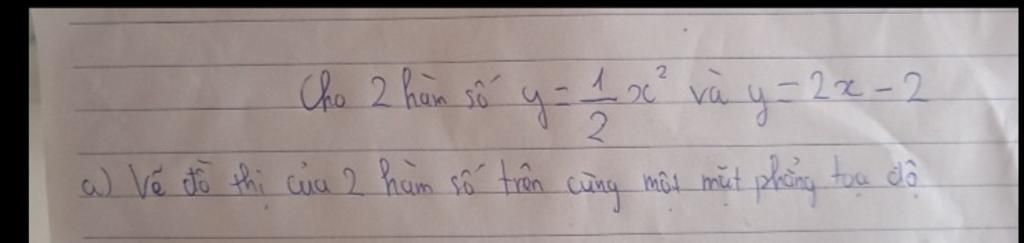 Cho 2 hàm số y = 1/2 x² và y = 2x - 2
a) Vẽ đồ thị của 2 hàm số trên cùng một mặt phẳng tọa độ